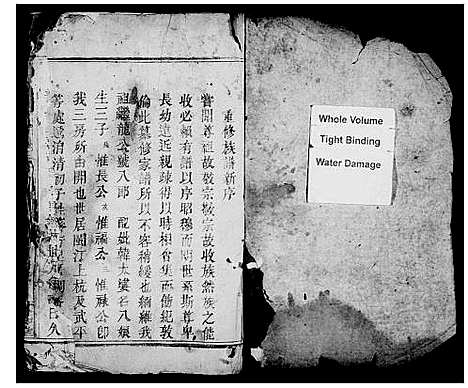 重修族譜新序
嘗聞尊祖故敬宗敬宗故收族然族之能
收必賴有譜以序昭穆而明世系斯尊卑
長幼遠近親疎得以時相會集而倫紀敦
倫此纂修家譜所以不容稍緩也緬維我
祖 龍公號八郎 配妣韓大婆名八娘
生三子 惟長公 惟福公 惟祿公即
我三房所由開也世居閩汀上杭及武平
等處迨治清初子
Whole Volume
Tight Binding
Water Damage